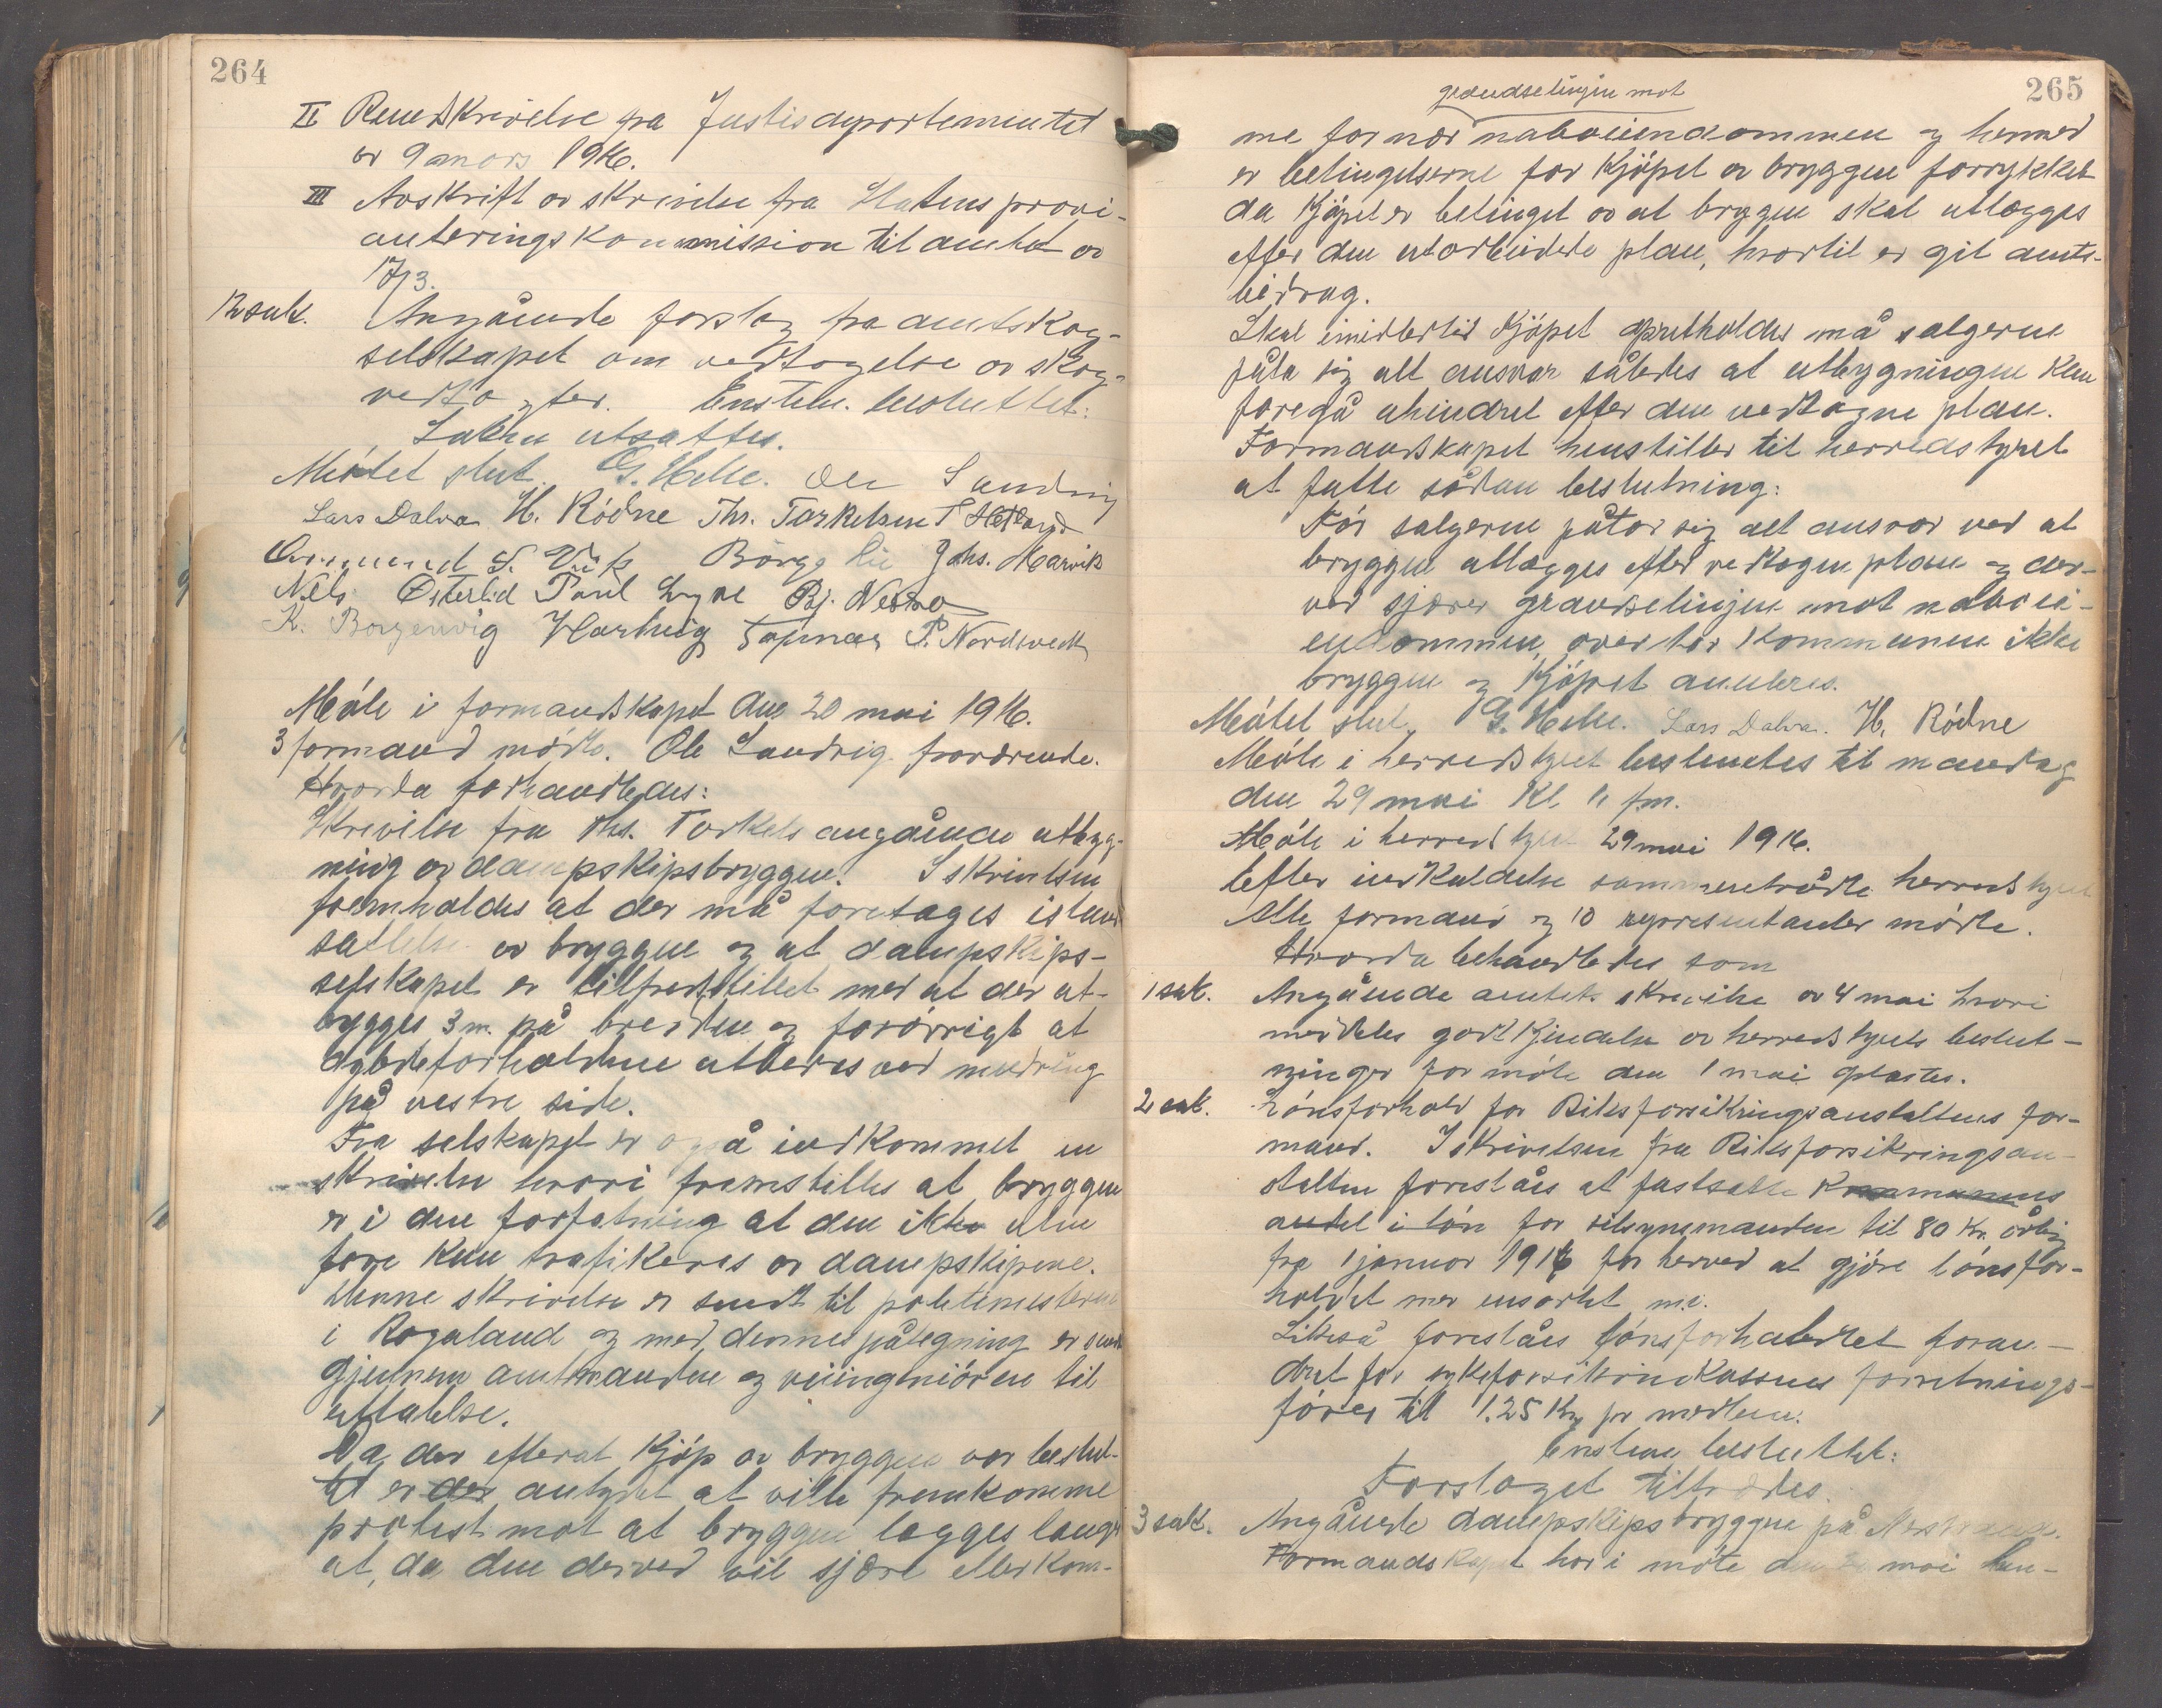 264
II Rundskrivelse fra Justisdepartementet
av 9 mars 1916.
III Avskrift av skrivelse fra Statens provi-
anteringskommission til amtet av
17/3.
12 sak. Angående forslag fra amtskog-
selskapet om vedtagelse av skog-
vedtægter. Enstem. besluttet:
Saken utsattes.
Møtet slut. G. Helle. Ole Sandvig
Lars Dalva H. Rødne Ths. Torkelsen T Hetland
S. Vik Børge Lie Johs. Marvik
Nels Østerlid Poul Lyne Bj. Nesmo
K. Borgenvig Hartvig P. Nordsveck
Møte i formandskapet den 20 mai 1916.
3 formænd mødte. Ole Sandvig fraværende.
Hvorda forhandledes:
Skrivelse fra Ths. Torkels angående utbyg-
ning av dampskipsbryggen. I skrivelsen
fremholdes at der må foretages istand
sættelse av bryggen og at dampskips-
selskapet er tilfredsstillet med at der ut-
bygges 3 m. på bredden og forøvrigt at
dybdeforholdene utbedres ved mudring
på vestre side.
Fra selskapet er også indkommet en
skrivelse hvori fremstilles at bryggen
er i den forfatning at den ikke uten
fare kan trafikeres av dampskipene.
Denne skrivelse er sendt til politimesteren
i Rogaland og med dennes påtegning er sendt
gjennem amtmanden og veiingeniøren til
uttalelse.
Da der efterat kjøp av bryggen var beslut-
tet er der antydet at ville fremkomme
protest mot at bryggen lægges længr
ut, da den derved vil sjære eller kom-
265
grændselinjen mot
me for nær naboeiendommen og hermed
er betingelserne for kjøpet av bryggen forrykket
da kjøpet er betinget av at bryggen skal utlægges
efter den utarbeidede plan, hvortil er git amts-
bidrag.
Skal imidlertid kjøpet opretholdes må sælgerne
påta sig alt ansvar således at utbygningen kan
foregå uhindret efter den vedtagne plan.
Formandskapet henstiller til herredstyret
at fatte sådan beslutning:
Før sælgerne påtar sig alt ansvar ved at
bryggen utlægges efter vedtagen plan og der-
ved sjærer grændselinjen mot naboei-
endommen, overtar kommunen ikke
bryggen og kjøpet anuleres.
Møtet slut. G. Helle. Lars Dalva. H. Rødne
Møte i herredstyret besluttedes til mandag
den 29 mai kl 11 fm.
Møte i herredstyret 29 mai 1916.
Efter indkaldelse sammentrådte herredstyret
Alle formænd og 10 representanter mødte.
Hvorda behandledes som
1 sak. Angående amtets skrivelse av 4 mai hvori
meddeles godkjendelse av herredstyrets beslut-
ninger for møte den 1 mai oplæstes.
2 sak. Lønsforhold for Riksforsikringsanstaltens for-
mand. I skrivelsen fra Riksforsikringsan-
stalten foreslåes at fastsætte kommunens
andel i løn for tilsynsmanden til 80 kr. årlig
fra 1 januar 1916 for herved at gjøre lønsfor-
holdet mer ensartet m.v.
Likeså foreslåes lønsforholdet foran-
dret for sykeforsikrinkassens forretnings-
fører til 1.25 Kr pr medlem.
Enstem besluttet:
Forslaget tiltrædes.
3 sak. Angående dampskipsbryggen på
Formandskapet har i møte den 20 mai hen-